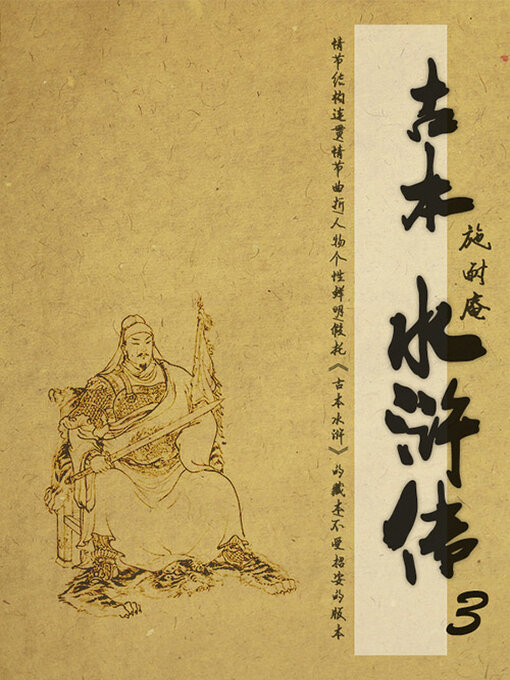 古本 水浒传 3
施耐庵
情节结构连贯情节曲折人物个性鲜明假托《古本水浒》的藏本不受招安的版本